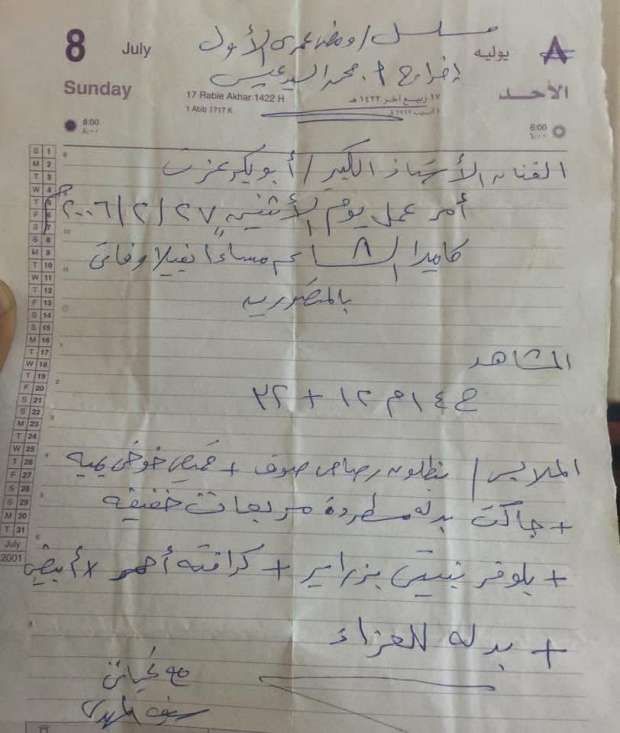 8 July
Sunday
17 Rabie Akhar 1422 H
1 Abib 1717 K
يوليه ٨
الأحد
١٧ ربيع آخر ١٤٢٢ هـ
مسلسل / ومضى عمرى الأول
إخراج / أ. محمد السيد عيسى
8:00
٨:٠٠
6:00
الفنان الأستاذ الكبير / أبو بكر عزت
أمر عمل يوم الأثنين ٢٧ / ٢ / ٢٠٠٦ م
كاميرا الساعة ٨ مساءاً بفيلا وفائى
بالمنصورية
المشاهد
ح ١٤ م ١٢ + ٣٢
الملابس / بنطلون رصاصى صوف + قميص خوخى بيه
+ جاكت بدله مربعات خفيفه
+ بلوفر نبيتى بزراير + كرافته أحمر × أبيض
+ بدله للعزاء
مع تحياتى
S 1
M 2
T 3
W 4
T 5
F 6
S 7
S 8
M 9
T 10
W 11
T 12
F 13
S 14
S 15
M 16
T 17
W 18
T 19
F 20
S 21
S 22
M 23
T 24
W 25
T 26
F 27
S 28
S 29
M 30
T 31
July
2001